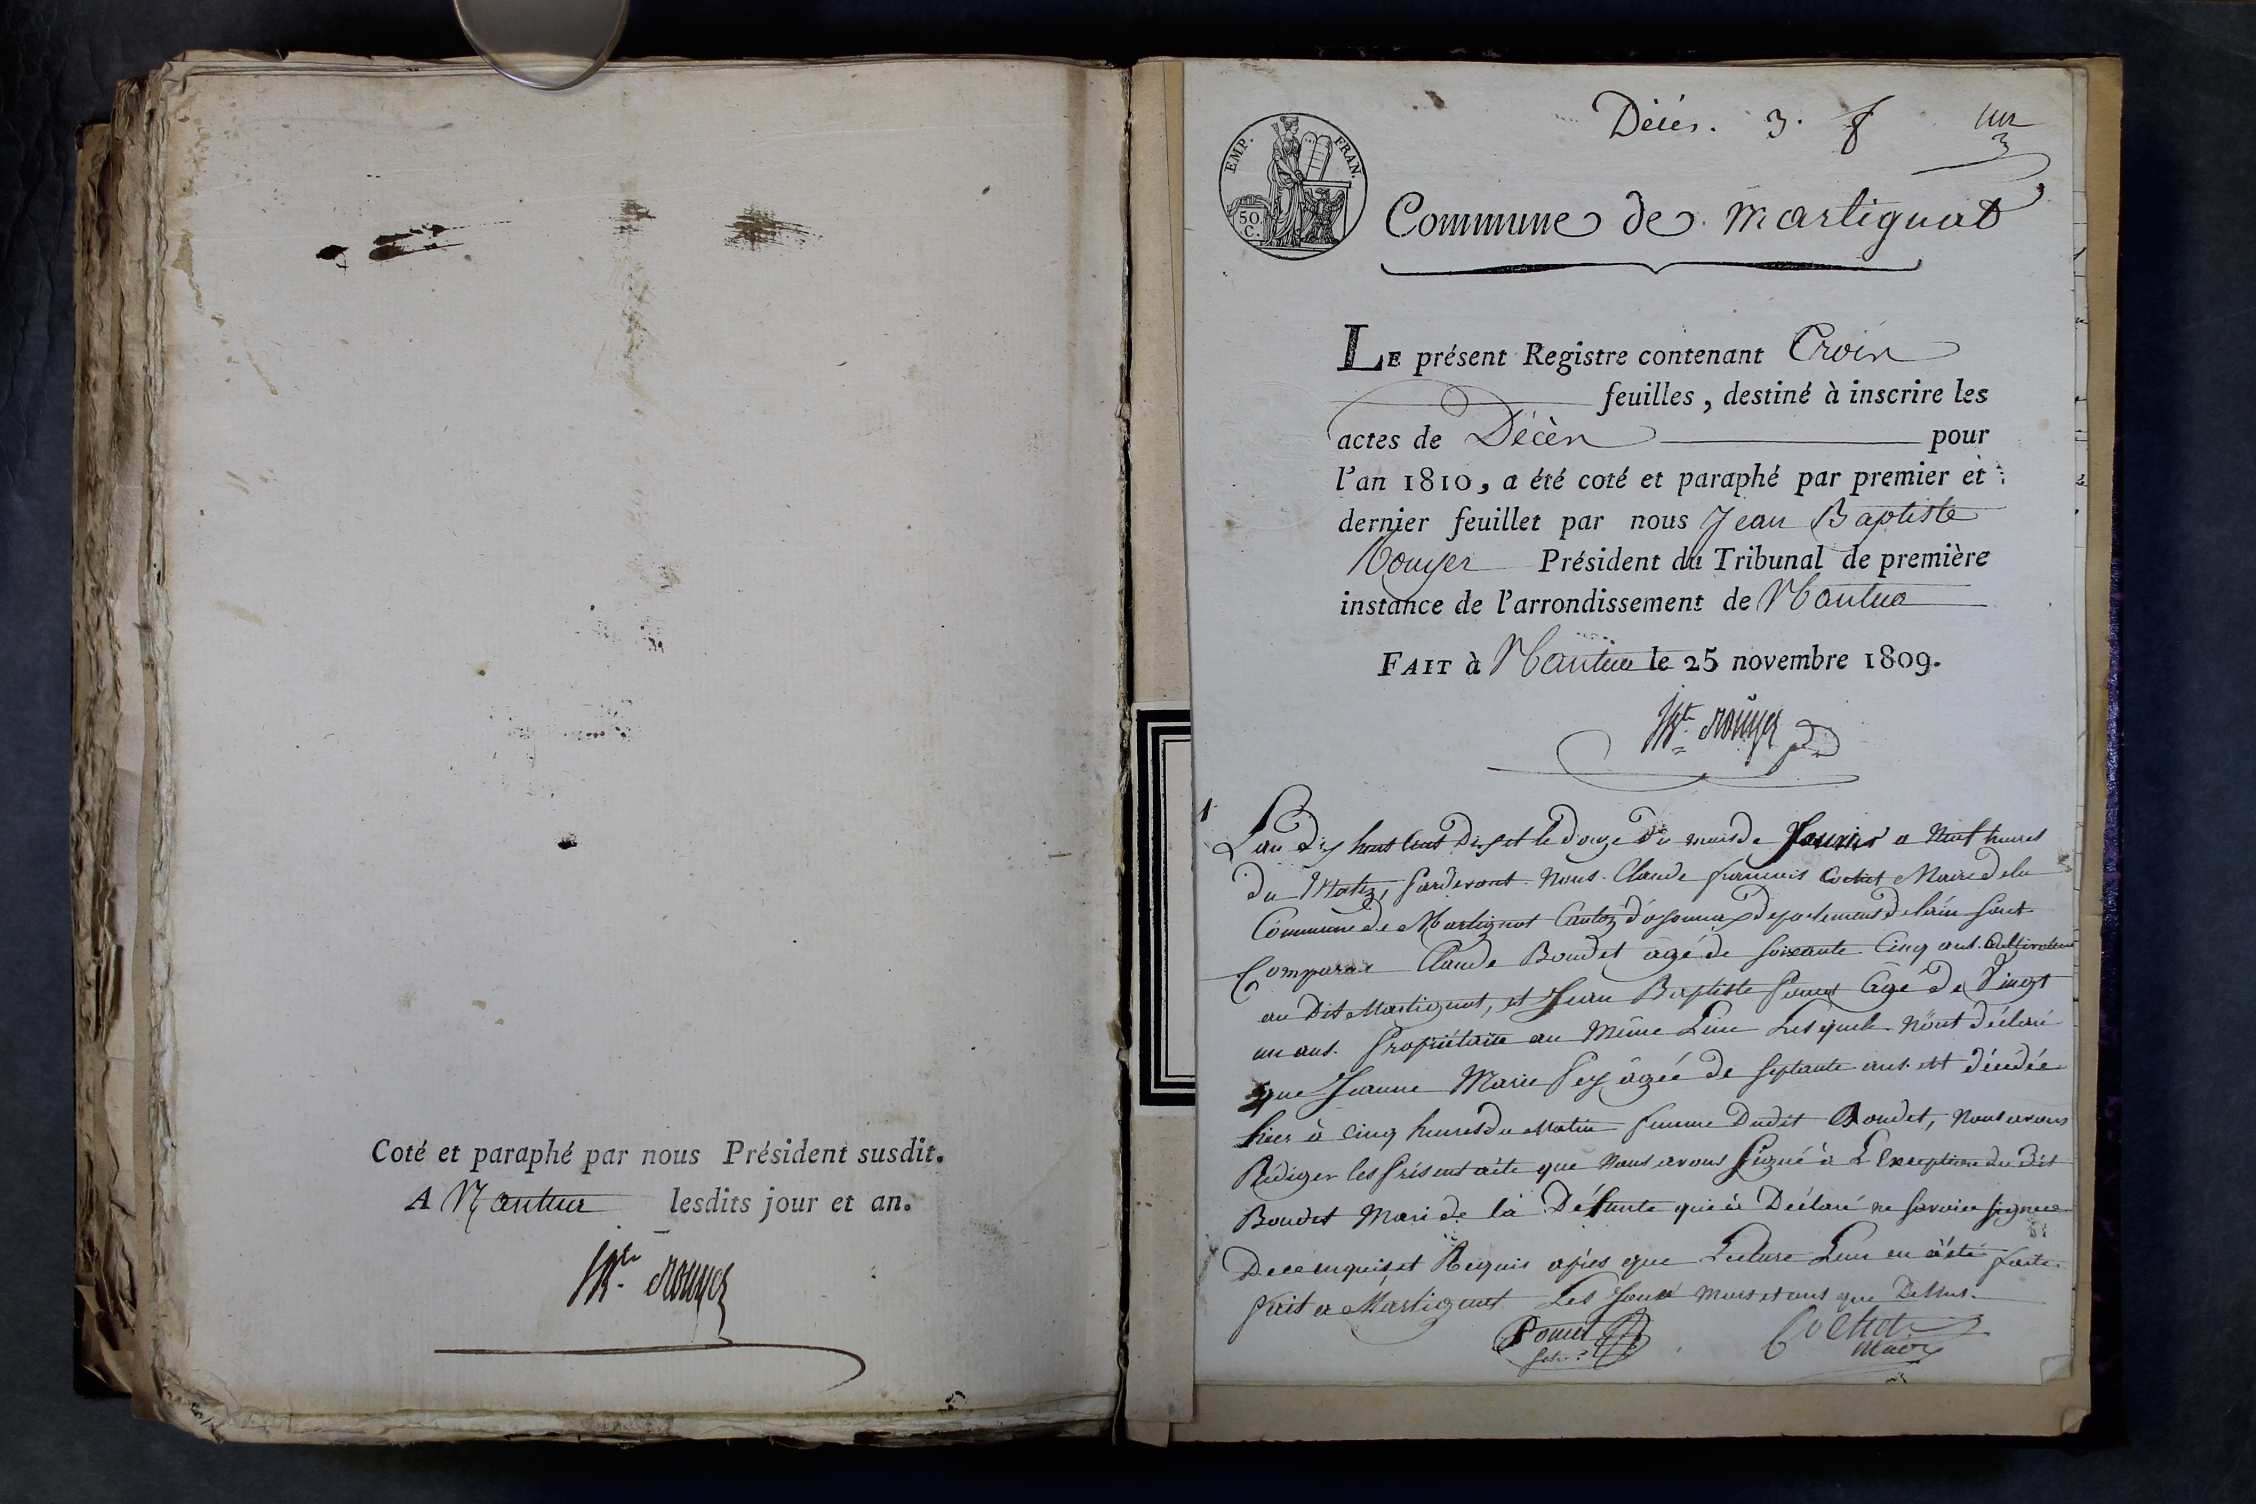 Coté et paraphé par nous Président susdit.
A Nantua lesdits jour et an.
Jn Bte Rouyer
Décès. 3. f un
3
EMP. FRAN.
50. C.
Commune de Martignat
LE présent Registre contenant Trois
feuilles, destiné à inscrire les
actes de Décès pour
l'an 1810, a été coté et paraphé par premier et
dernier feuillet par nous Jean Baptiste
Rouyer Président du Tribunal de première
instance de l'arrondissement de Nantua
FAIT à Nantua le 25 novembre 1809.
Jn Bte Rouyer
1
L'an Dix huit Cent Dix et le douze du mois de Janvier a Neuf heures
du Matin, pardevant Nous Claude françois Cochet Maire de la
Commune de Martignat Canton d'oyonnax departement de lain sont
Comparu Claude Boudet agé de soixante Cinq ans Cultivateur
au Dit Martignat, et Jean Baptiste Ponet agé De Vingt
un ans. Propriétaire au Même Lieu Lesquels Nont déclaré
que Jeanne Marie Pey âgée de septante ans est décédée
hier à cinq heures du Matin femme Dudit Boudet, Nous avons
Rédiger les présent acte que Nous avons signé à L'Exception du Dit
Boudet Mari de la Défunte qui à Déclaré ne savoir signer
De ce enquis et Requis après que Lecture Leur en a été faite.
fait a Martignat Les Jour Mois et ans que Dessus.
Ponet Cochet
Maire